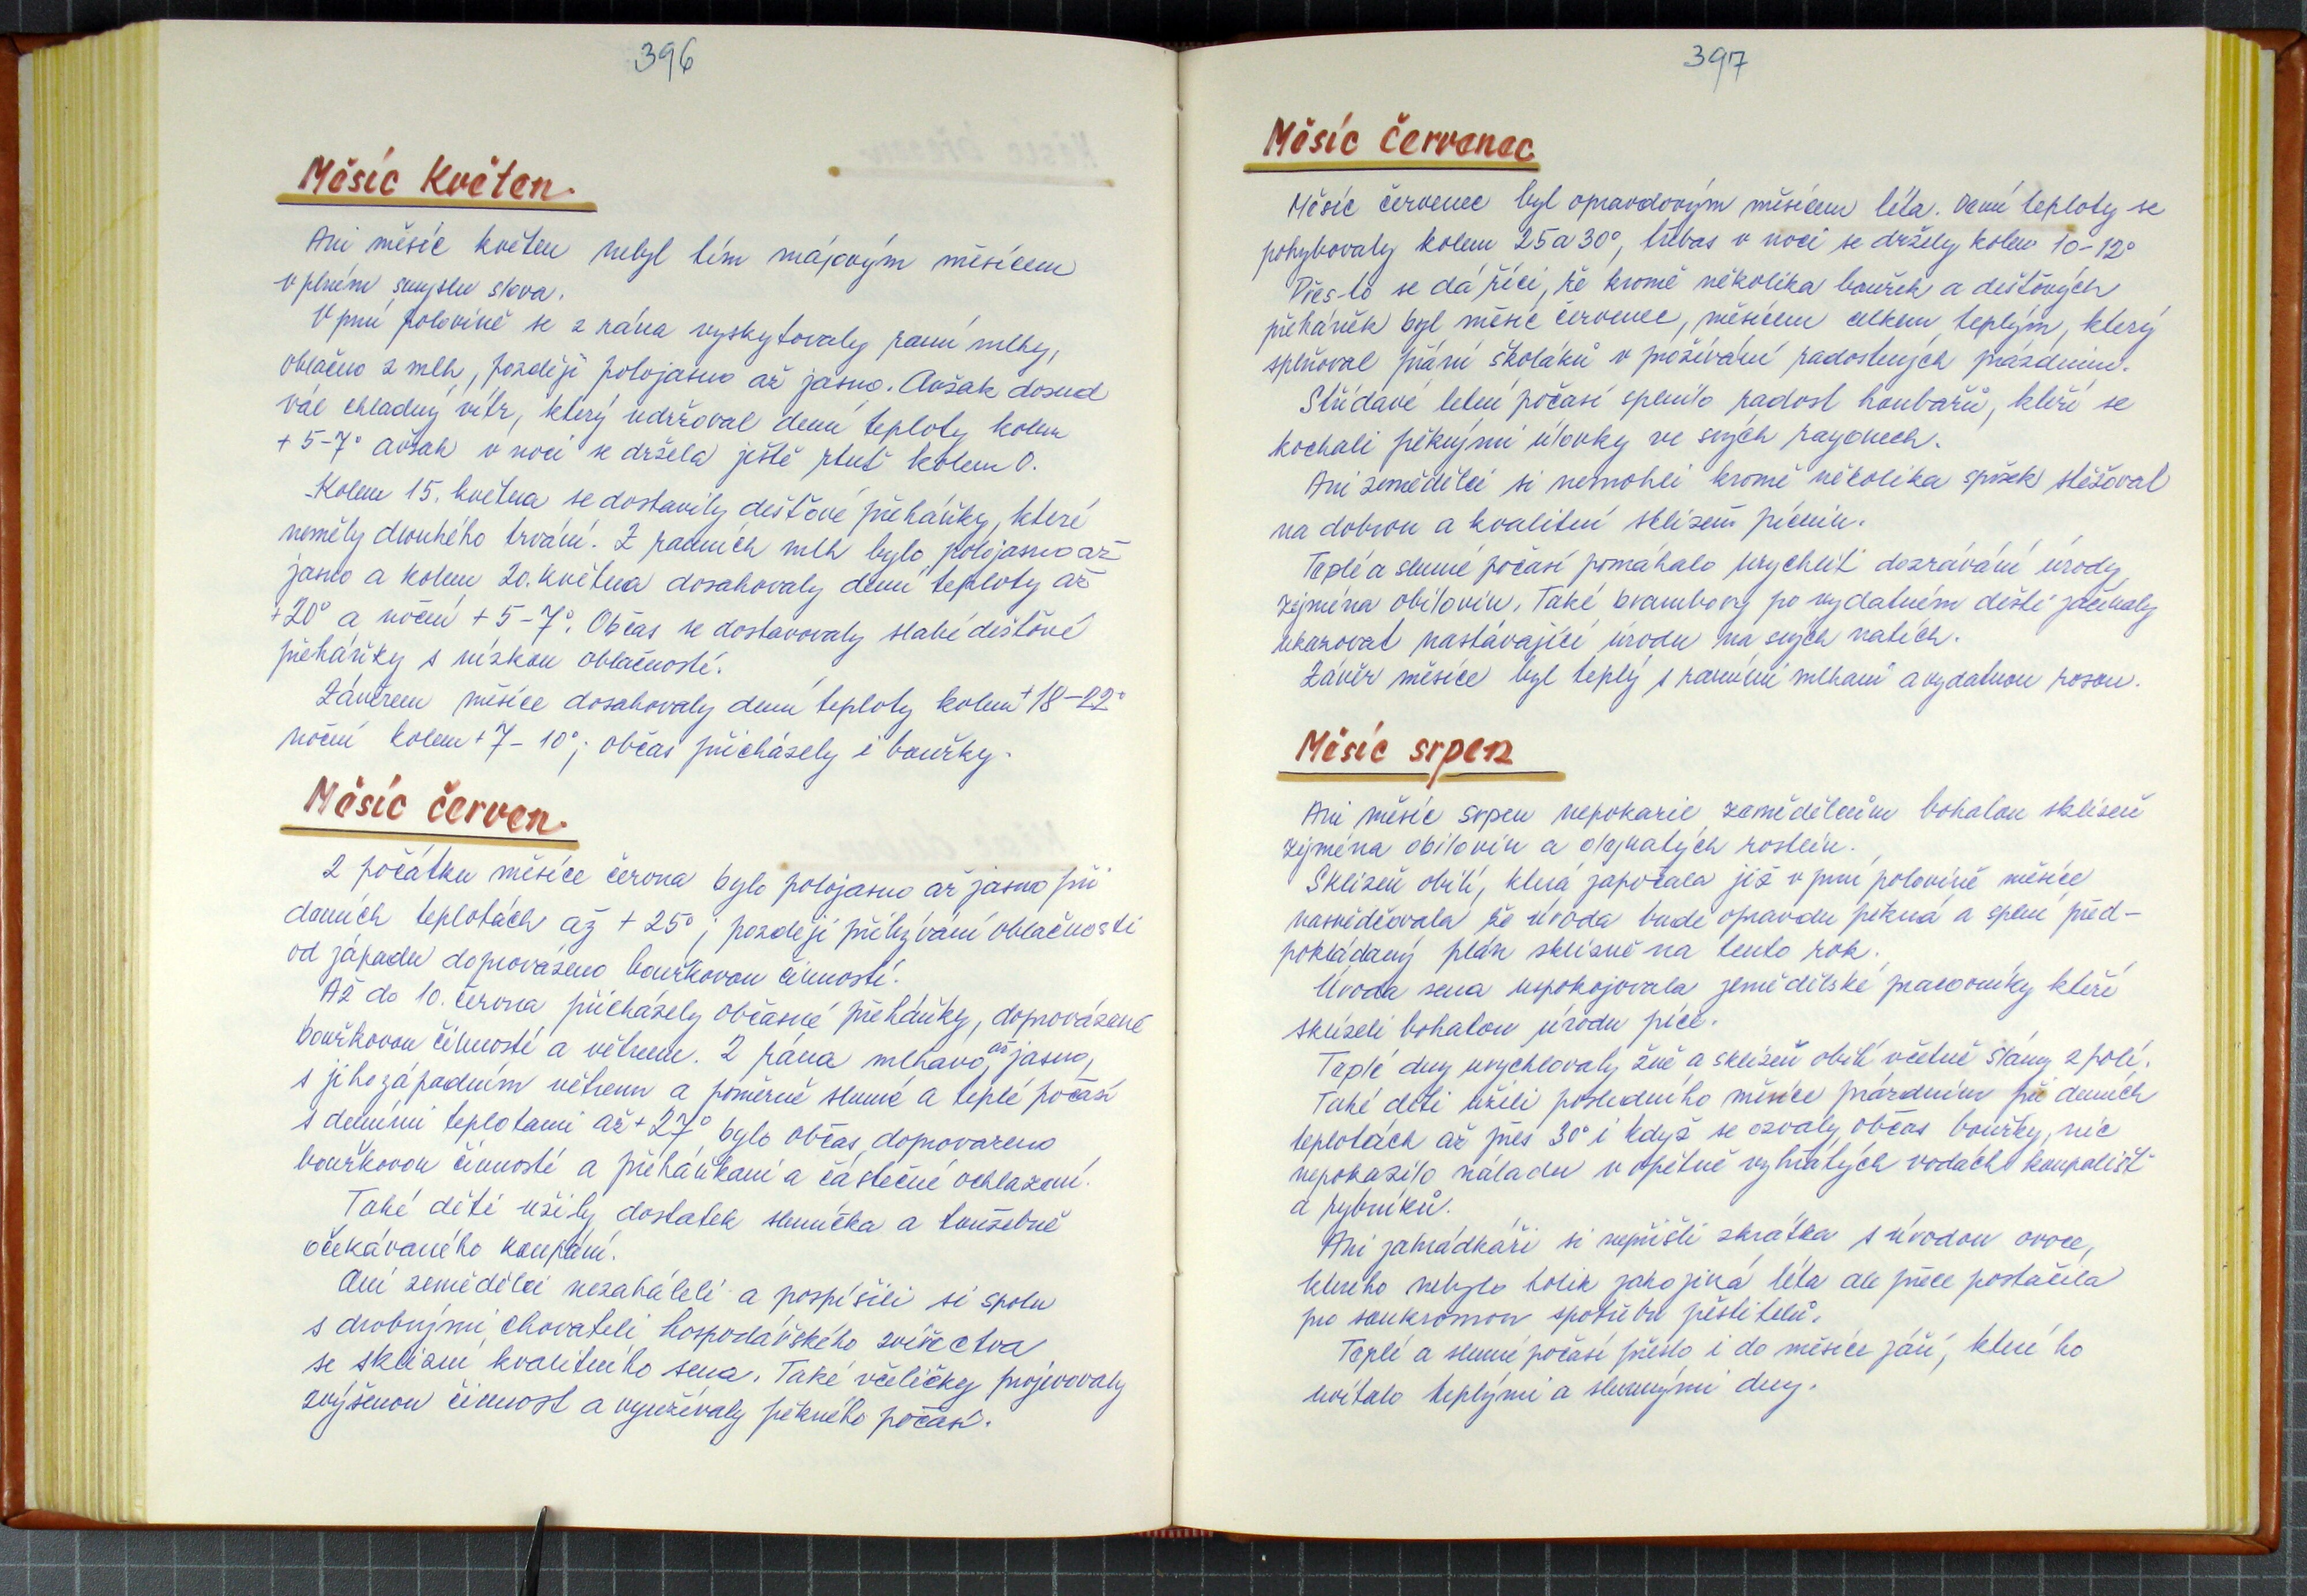 396
Měsíc Květen.
Ani měsíc květen nebyl tím májovým měsícem
v plném smyslu slova.
V prní polovině se z rána vyskytovaly raní mlhy,
oblačno z mlh, později polojasno až jasno. Avšak dosud
vál chladný vítr, který udržoval dení teploty kolem
+5-7° avšak v noci se držela ještě rtuť kolem 0.
Kolem 15. května se dostavily dešťové přeháňky, které
neměly dlouhého trvání. Z raních mlh bylo polojasno až
jasno a kolem 20. května dosahovaly dení teploty až
+20° a noční +5-7°. Občas se dostavovaly slabé dešťové
přeháňky s nízkou oblačností.
Závěrem měsíce dosahovaly dení teploty kolem +18-22°
noční kolem +7-10°; občas přicházely i bouřky.
Měsíc červen.
Z počátku měsíce června bylo polojasno až jasno při
deních teplotách až +25°; později přibývání oblačnosti
od západu doprovázeno bouřkovou činností.
Až do 10. června přicházely občasné přeháňky, doprovázené
bouřkovou činností a větrem. Z rána mlhavo, až jasno,
s jihozápadním větrem a poměrně sluné a teplé počasí
s deními teplotami až +27° bylo občas doprovazeno
bouřkovou činností a přeháňkami a částečné ochlazení.
Také děti užily dostatek sluníčka a toužebně
očekávaného koupání.
Ani zemědělci nezaháleli a pospíšili si spolu
s drobnými chovateli hospodářského zvířectva
se sklizní kvalitního sena. Také včeličky projevovaly
zvýšenou činnost a využívaly pěkného počasí.
397
Měsíc červenec
Měsíc červenec byl opravdovým měsícem léta. Dení teploty se
pohybovaly kolem 25 a 30°, třebas v noci se držely kolem 10-12°
Přes-to se dá říci, že kromě několika bouřek a dešťových
přeháněk byl měsíc červenec, měsícem celkem teplým, který
splňoval přání školáků v prožívání radostných prázdnin.
Střídavé letní počasí splnilo radost houbařů, kteří se
kochali pěknými úlovky ve svých rayonech.
Ani zemědělci si nemohli kromě několika spršek stěžovat
na dobrou a kvalitní sklizeň pícnin.
Teplé a sluné počasí pomáhalo urychlit dozrávání úrody
zejména obilovin. Také brambory po vydatném dešti začínaly
ukazovat nastávající úrodu na svých natích.
Závěr měsíce byl teplý s raními mlhami a vydatnou rosou.
Měsíc srpen
Ani měsíc srpen nepokazil zemědělcům bohatou sklizeň
zejména obilovin a olejnatých rostlin.
Sklizeň obilí, která započala již v prní polovině měsíce
nasvědčovala že úroda bude opravdu pěkná a splní před-
pokládaný plán sklizně na tento rok.
Úroda sena uspokojovala zemědělské pracovníky kteří
sklizeli bohatou úrodu píce.
Teplé dny urychlovaly žně a sklizeň obilí včetně slámy z polí.
Také děti užili posledního měsíce prázdnin při deních
teplotách až přes 30° i když se ozvaly občas bouřky, nic
nepokazilo náladu v opětně vyhřátých vodách koupališť
a rybníků.
Ani zahrádkáři si nepřišli zkrátka s úrodou ovoce,
kterého nebylo tolik jako jiná léta ale přece postačila
pro soukromou spotřebu pěstitelů.
Teplé a sluné počasí přešlo i do měsíce září, které ho
uvítalo teplými a slunnými dny.